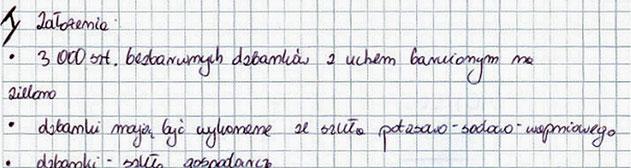 1) Założenia:
• 3 000 szt. bezbarwnych dzbanków z uchem barwionym na
zielono
• dzbanki mają być wykonane ze szkła potasowo-sodowo-wapniowego
• dzbanki - szkło gospodarcze